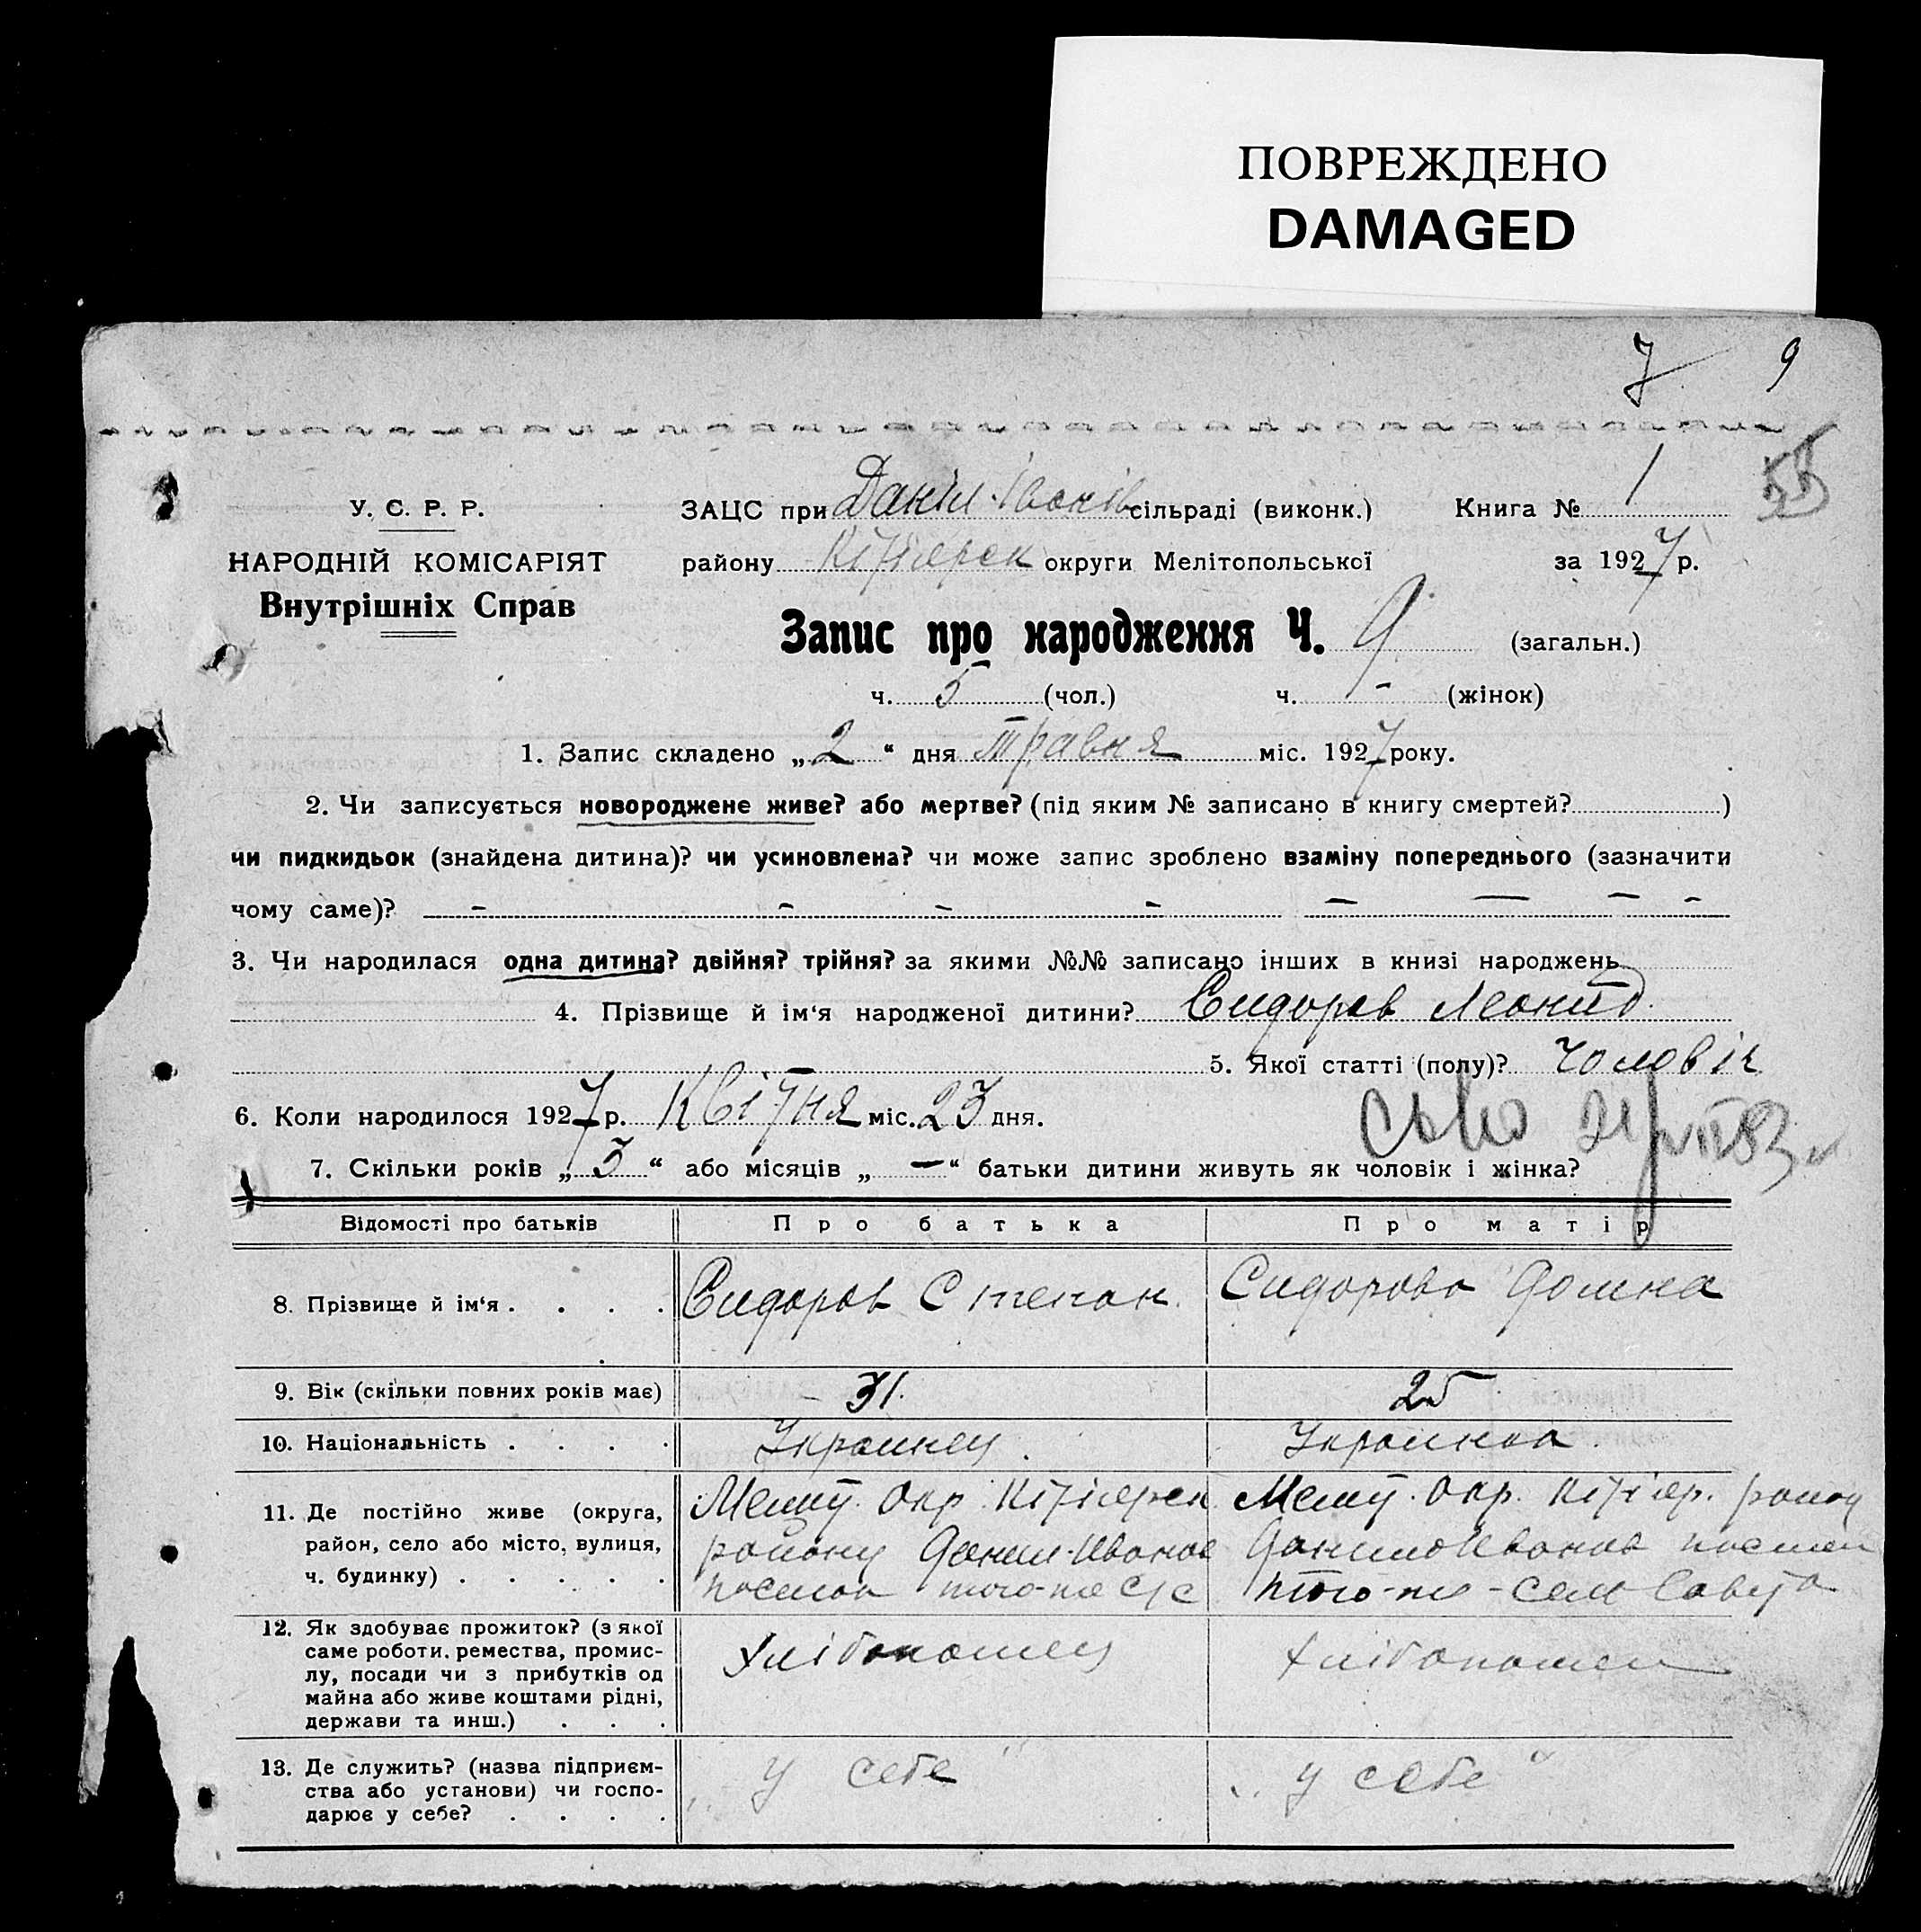 ПОВРЕЖДЕНО
DAMAGED
7 9
55
У. С. Р. Р.
НАРОДНІЙ КОМІСАРІЯТ
Внутрішніх Справ
ЗАЦС при Даніл-Іванів сільраді (виконк.) Книга № 1
району округи Мелітопольської за 1927 р.
Запис про народження Ч. 9 (загальн.)
ч. 5 (чол.) ч. - (жінок)
1. Запис складено „ 2 “ дня травня міс. 1927 року.
2. Чи записується новороджене живе? або мертве? (під яким № записано в книгу смертей? )
чи пидкидьок (знайдена дитина)? чи усиновлена? чи може запис зроблено взаміну попереднього (зазначити
чому саме)? - - - - - - - -
3. Чи народилася одна дитина? двійня? трійня? за якими №№ записано інших в книзі народжень
4. Прізвище й ім‘я народженої дитини? Сидоров Леонид
5. Якої статті (полу)? чоловік
6. Коли народилося 1927 р. Квітня міс. 23 дня.
7. Скільки років „ 3 “ або місяців „ — “ батьки дитини живуть як чоловік і жінка?
Відомості про батьків Про батька Про матір
8. Прізвище й ім‘я . . . . Сидоров Степан Сидорова Домна
9. Вік (скільки повних років має) 31. 25
10. Національність . . . . Украинец Украинка
11. Де постійно живе (округа, Мелит. Окр. Мелит. Окр. району
район, село або місто, вулиця, району Данил-Иванов Данило Иванов
ч. будинку) . . . . . того-же с/с того-же - сель Совета
12. Як здобуває прожиток? (з якої
саме роботи, ремества, промис-
лу, посади чи з прибутків од
майна або живе коштами рідні,
держави та инш.) . . .
Хлібопашец Хлібопашец
13. Де служить? (назва підприєм-
ства або установи) чи госпо-
дарює у себе? . . . .
„ у себе “ „ у себе “